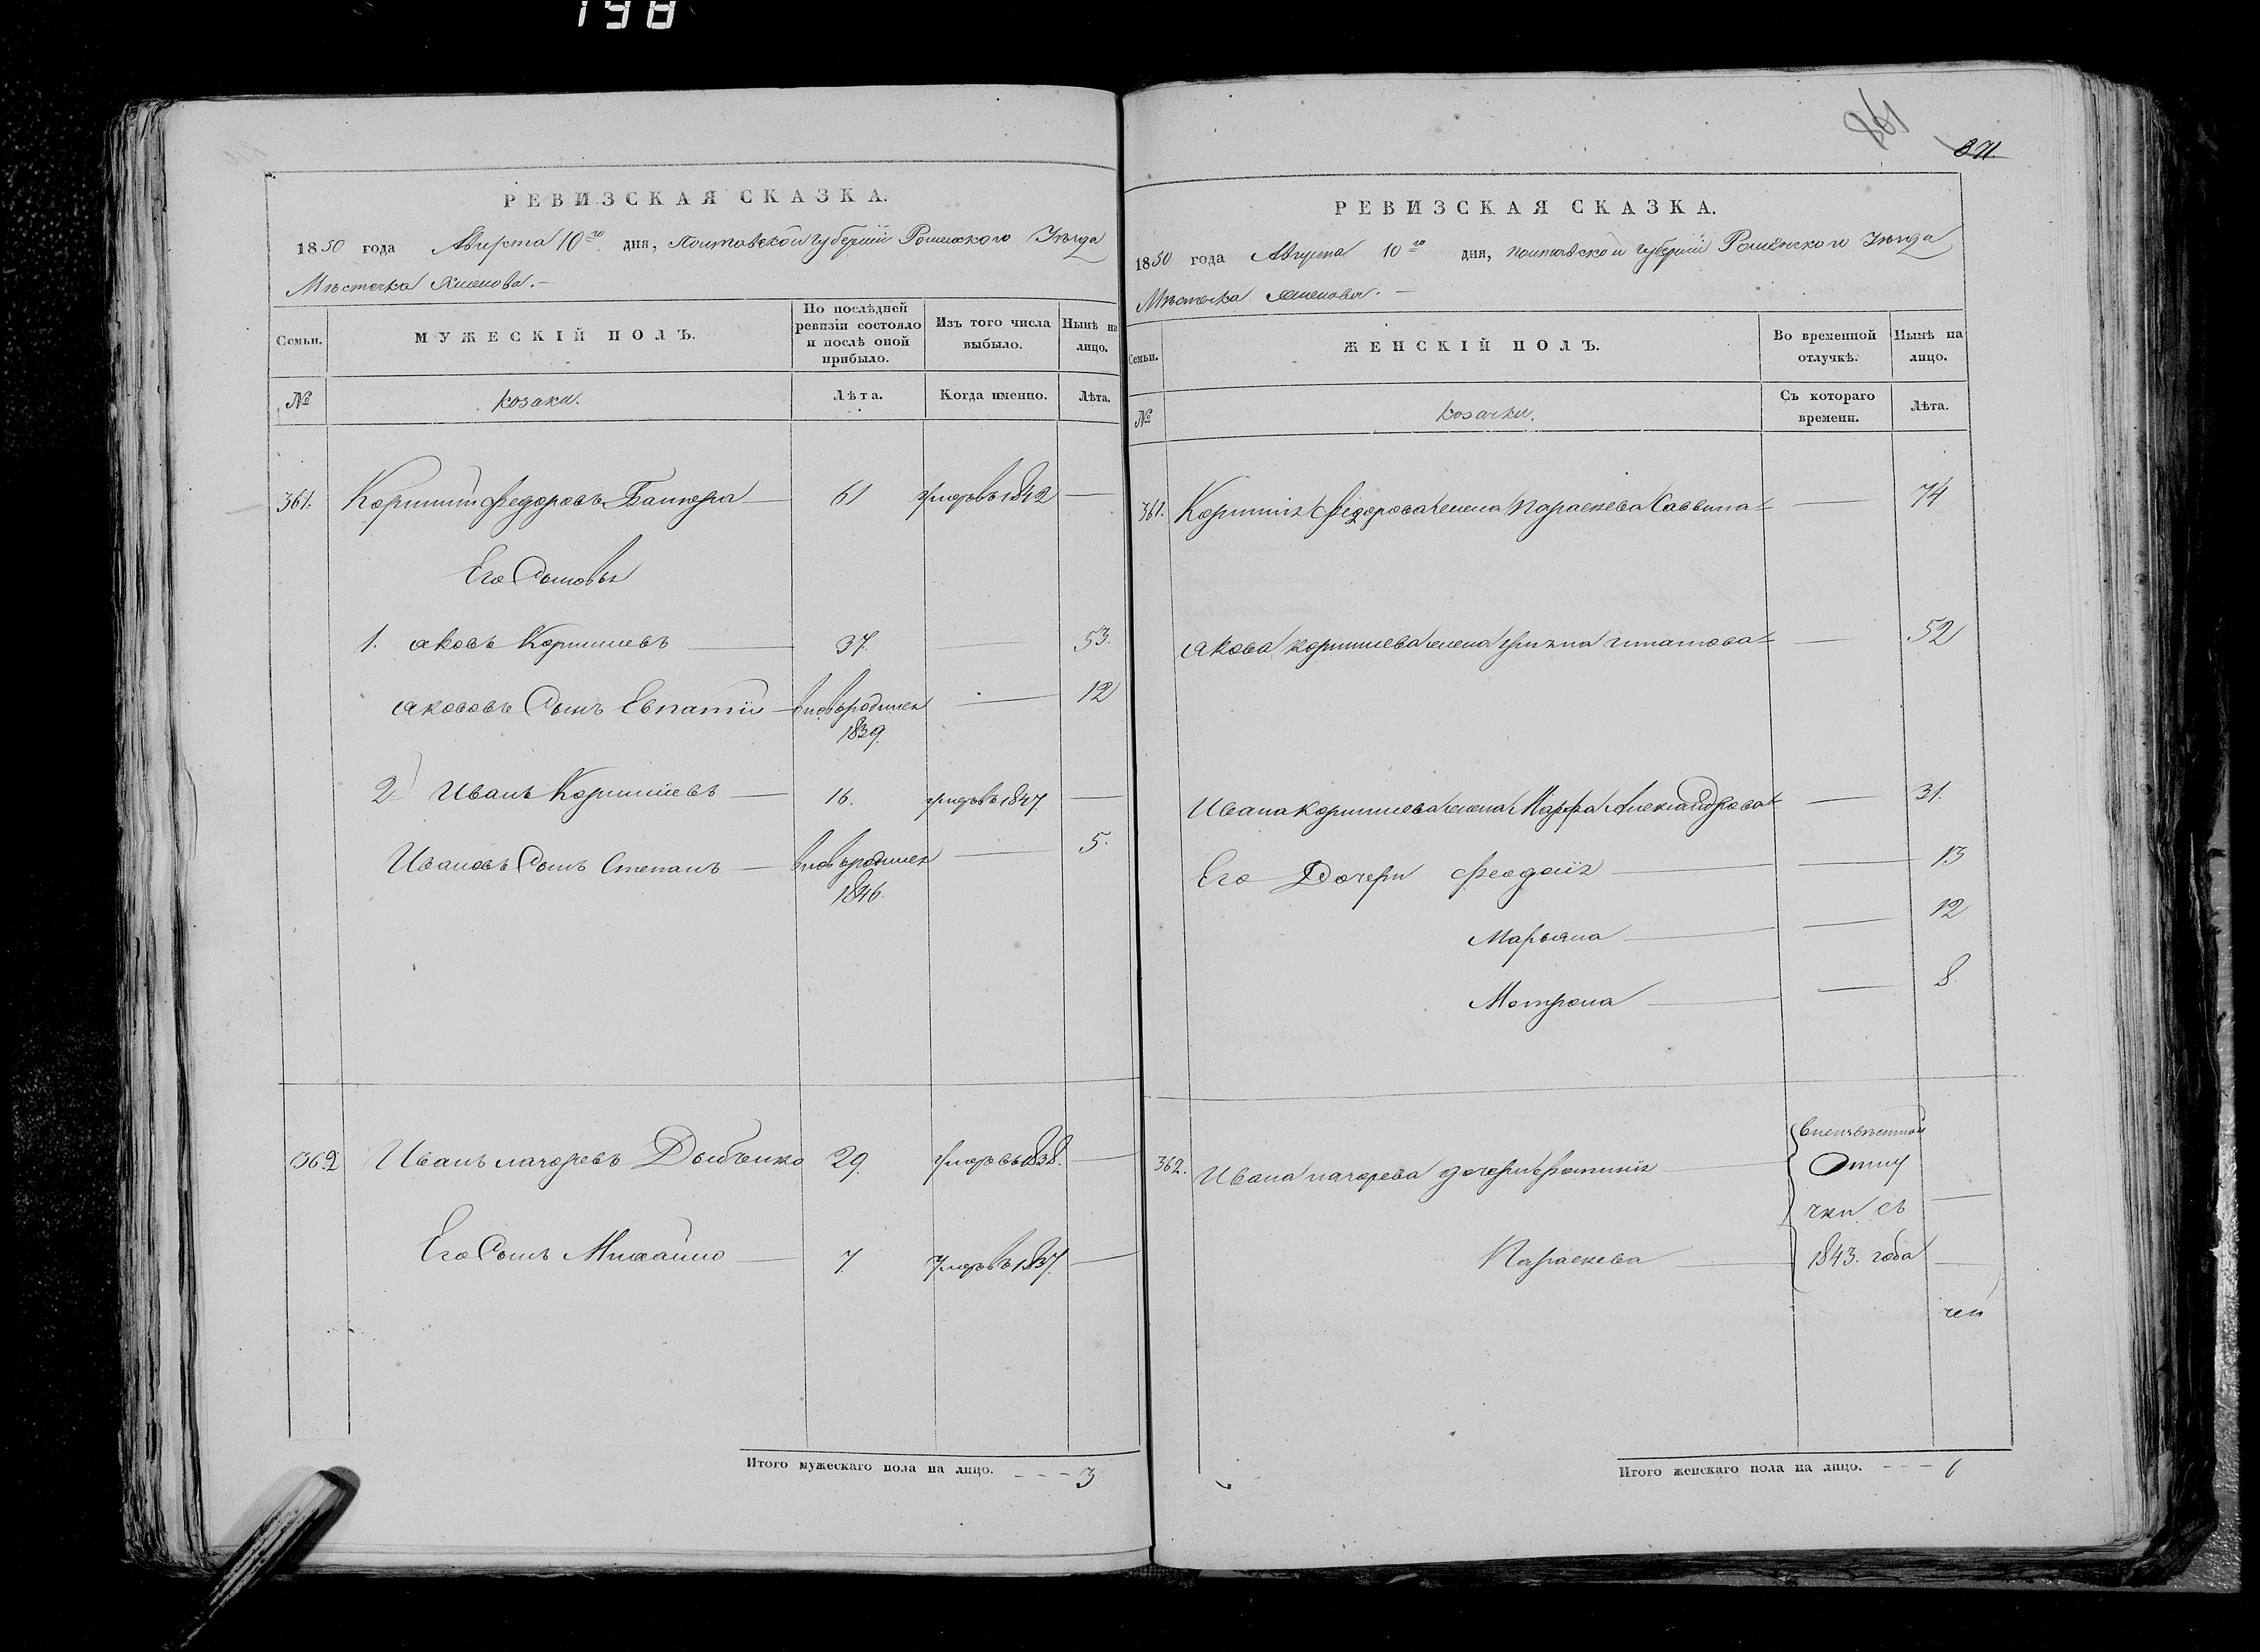 198
РЕВИЗСКАЯ СКАЗКА.
1850 года Августа 10го дня, Полтавской Губерніи Роменского Уѣзда
Мѣстечка Хмелова. —
Семьи.
МУЖЕСКІЙ ПОЛЪ.
По послѣдней ревизіи состояло и послѣ оной прибыло.
Изъ того числа выбыло.
Нынѣ на лицо.
№
Козаки.
Лѣта.
Когда именно.
Лѣта.
361. Корнилій Федоровъ 61 умеръ въ 1842 —
Его Сыновья
1. Яковъ Корнилиевъ — 37. — 53.
Яковъ Сынъ Евпатій — вновь родился — 12
1839.
2 Иванъ Корнилиевъ — 16. умеръ въ 1847 —
Ивановъ Сынъ Степанъ — вновь родился — 5.
1846.
362 Иванъ Дыбченко 29. умеръ въ 1838. —
Его Сынъ Михайло — 7. умеръ въ 1837. —
Итого мужескаго пола на лицо. - - - 3
261
371.
РЕВИЗСКАЯ СКАЗКА.
1850 года Августа 10го дня, Полтавской Губерніи Роменского Уѣзда
Мѣстечка Хмелова. —
Семьи.
ЖЕНСКІЙ ПОЛЪ.
Во временной отлучкѣ.
Нынѣ на лицо.
№
Козачки.
Съ котораго времени.
Лѣта.
361. Корнилія Федорова жена Параскева Саввина — 74
Якова Корнилиева жена Ирина Игнатова — 52
Ивана Корнилиева жена Марфа Александрова — 31.
Его Дочери Феодосія — — 13
Марьяна — — 12
Мотрона — — 8.
362. Ивана дочери Фотинія — въ неизвѣстной
Отлу
чки съ —
Параскева — 1843. года —
Итого женскаго пола на лицо. - - - 6